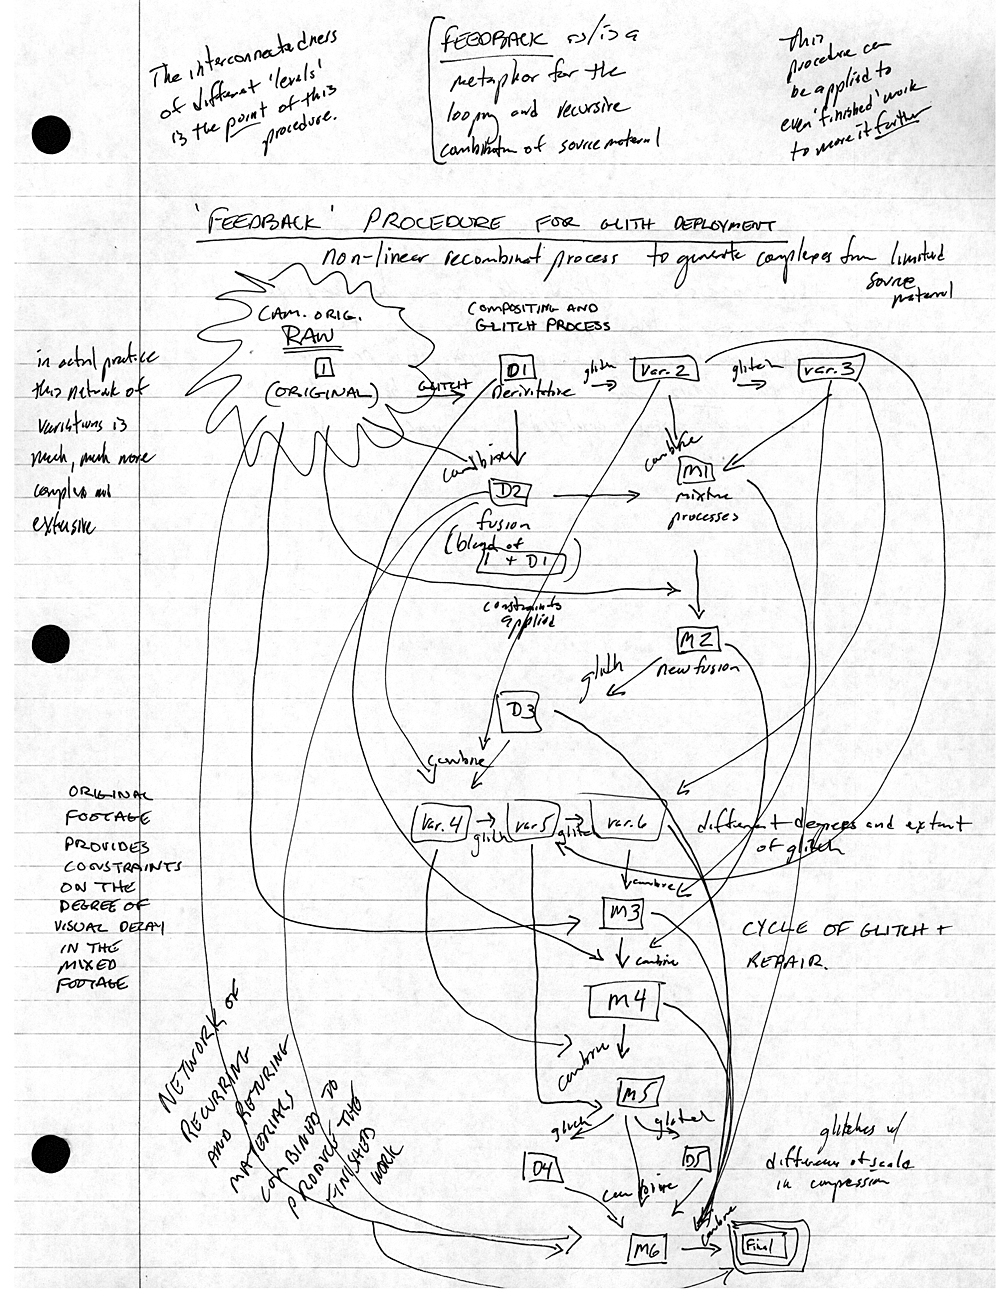 The interconnectedness
of different 'levels'
is the point of this
procedure.
FEEDBACK as/is a
metaphor for the
looping and recursive
combination of source material
This
procedure can
be applied to
even 'finished' work
to move it further
'FEEDBACK' PROCEDURE FOR GLITH DEPLOYMENT
non-linear recombinat process to generate complexes from limited
source
material
CAM. ORIG.
RAW
1
(ORIGINAL)
COMPOSITING AND
GLITCH PROCESS
GLITCH
D1
Derivitative
glith
Var. 2
glitch
var. 3
in actual practice
this network of
variations is
much, much more
complex and
extensive
combine
D2
fusion
(blend of
1 + D1)
combine
M1
mixture
processes
constraints
applied
M2
new fusion
glith
D3
combine
ORIGINAL
FOOTAGE
PROVIDES
CONSTRAINTS
ON THE
DEGREE OF
VISUAL DECAY
IN THE
MIXED
FOOTAGE
Var. 4
glith
var 5
glitch
var. 6
different degrees and extent
of glitch
combine
M3
CYCLE OF GLITCH +
REPAIR.
combine
M4
combine
M5
glitch
glitch
D4
D5
combine
glitches w/
differences of scale
in compression
NETWORK OF
RECURRING
AND RETURING
MATERIALS
COMBINED TO
PRODUCE THE
FINISHED
WORK
combine
M6
Final